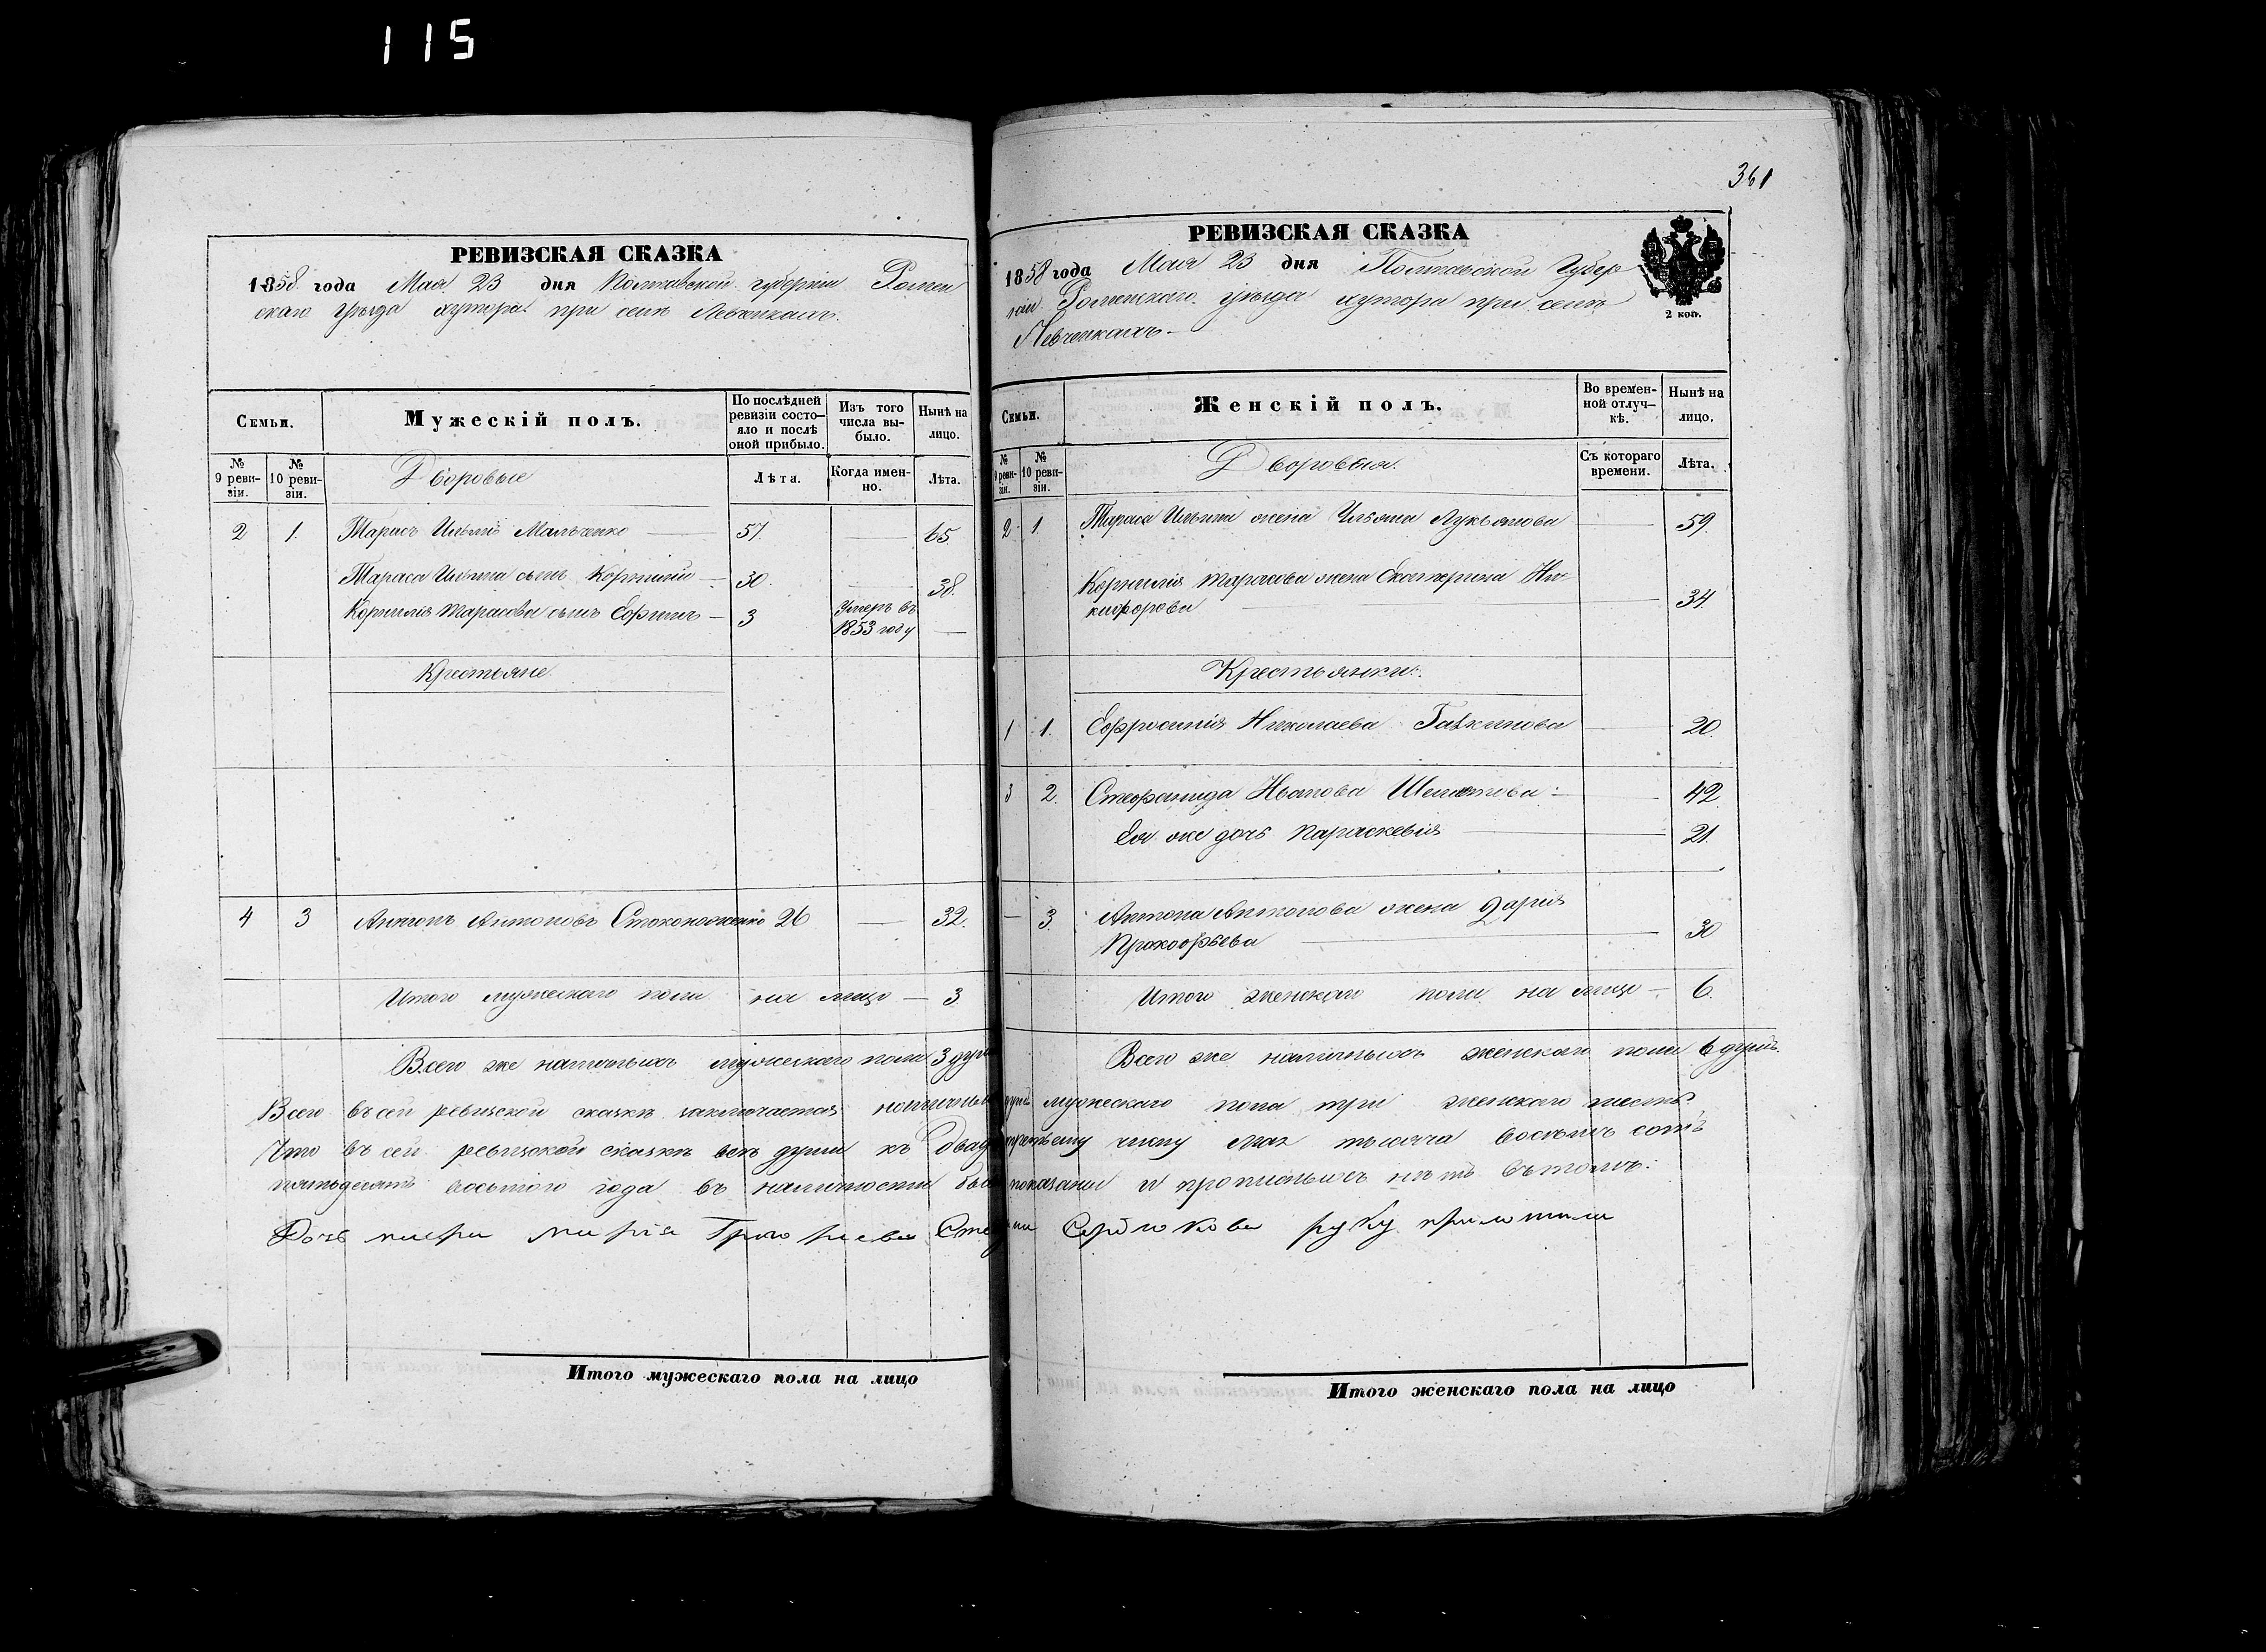 115
РЕВИЗСКАЯ СКАЗКА
1858 года Мая 23 дня Полтавской губернии Ромен
скаго уѣзда хутора при селѣ Левченкахъ.
Семьи.
Мужескій полъ.
По послѣдней
ревизіи состо–
яло и послѣ
оной прибыло.
Изъ того
числа вы-
было.
Нынѣ на
лицо.
№
9 реви-
зіи.
№
10 реви-
зіи.
Дворовые
Лѣта.
Когда имен-
но.
Лѣта.
2 1. Тарасъ Ильинъ Мальченко 57 65.
Тараса Ильина сынъ Корнилій 30. 38.
Корнилія Тарасова сынъ Ефимъ 3 Умеръ въ
1853 году
Крестьяне
4 3 Антонъ Антоновъ 26 32.
Итого мужескаго пола на лицо – 3
Всего же наличныхъ мужескаго пола 3 душ
361
РЕВИЗСКАЯ СКАЗКА
1858 года Мая 23 дня Полтавской Губер
ніи Роменскаго уѣзда хутора при селѣ
Левченкахъ –
2 коп.
Семьи.
Женскій полъ.
Во времен-
ной отлуч–
кѣ.
Нынѣ на
лицо.
№
9 реви-
зіи.
№
10 реви-
зіи.
Дворовыя.
Съ котораго
времени.
Лѣта.
2. 1. Тараса Ильина жена Ульяна Лукьянова 59.
Корнилія Тарасова жена Екатерина Ни-
кифорова 34.
Крестьянки.
1 1. Ефросинія Николаева 20.
3 2. Стефанида Иванова 42.
Ея же дочь Параскевія 21.
3. Антона Антонова жена Дарія
Прокофьева 30
Итого женскаго пола на лицо – 6.
Всего же наличныхъ женскаго пола 6 душъ.
Всего въ сей ревизской сказкѣ заключается наличныхъ душъ мужескаго пола три женскаго шесть.
Что въ сей ревизской сказкѣ всѣ души къ двадцать третьему числу Мая тысяча восемьсотъ
пятьдесятъ восьмого года въ наличности были показаны и прописныхъ нѣтъ въ томъ:
Дочь Марія Григорьева Сердюкова руку приложила
Итого мужескаго пола на лицо
Итого женскаго пола на лицо